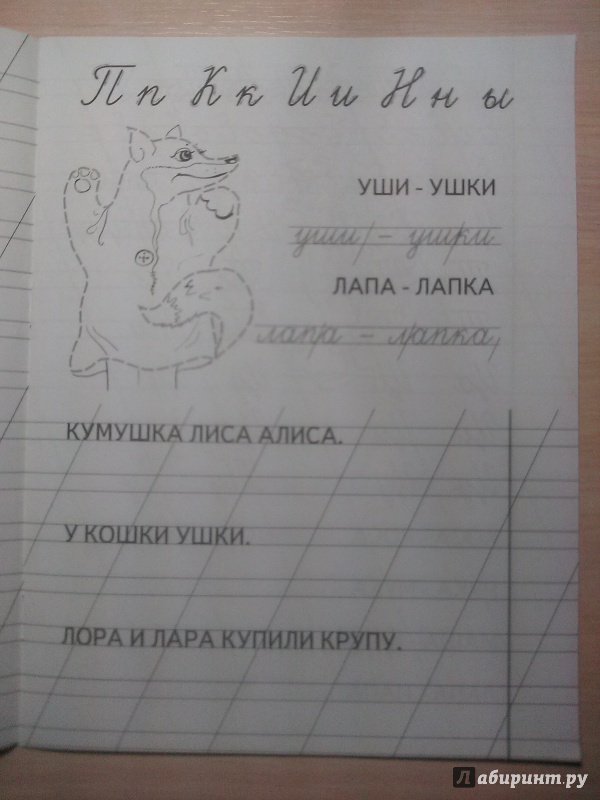 Пп Кк Ии Нн ы
УШИ - УШКИ
уши - ушки
ЛАПА - ЛАПКА
лапа - лапка
КУМУШКА ЛИСА АЛИСА.
У КОШКИ УШКИ.
ЛОРА И ЛАРА КУПИЛИ КРУПУ.
Лабиринт.ру